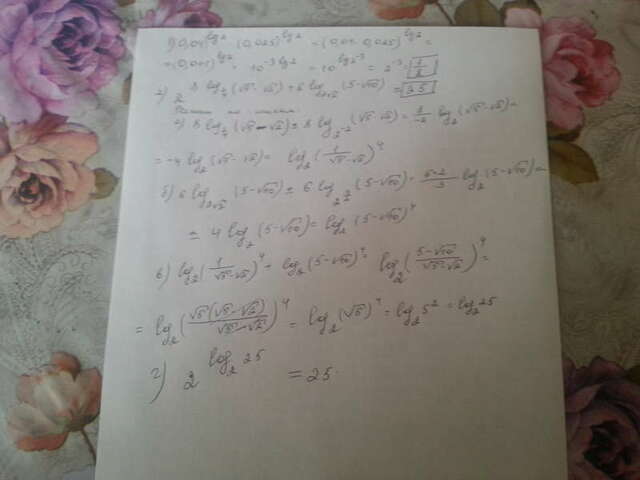 1) 0,04^{lg2} · (0,025)^{lg2} = (0,04 · 0,025)^{lg2} =
= (0,001)^{lg2} = 10^{-3 lg2} = 10^{lg2^{-3}} = 2^{-3} =
2) 2^{8 log_{1/4}(√5-√2) + 6 log_{2√2}(5-√10)} = 25
а) 8 log_{1/4}(√5-√2) = 8 log_{2^{-2}}(√5-√2) = 8/-2 log_2(√5-√2) =
= -4 log_2(√5-√2) = log_2(1/(√5-√2))^4
б) 6 log_{2√2}(5-√10) = 6 log_{2^{3/2}}(5-√10) = 6·2/3 log_2(5-√10) =
= 4 log_2(5-√10) = log_2(5-√10)^4
в) log_2(1/(√5-√2))^4 + log_2(5-√10)^4 = log_2((5-√10)/(√5-√2))^4 =
= log_2(√5(√5-√2)/(√5-√2))^4 = log_2(√5)^4 = log_2 5^2 = log_2 25
г) 2^{log_2 25} = 25.